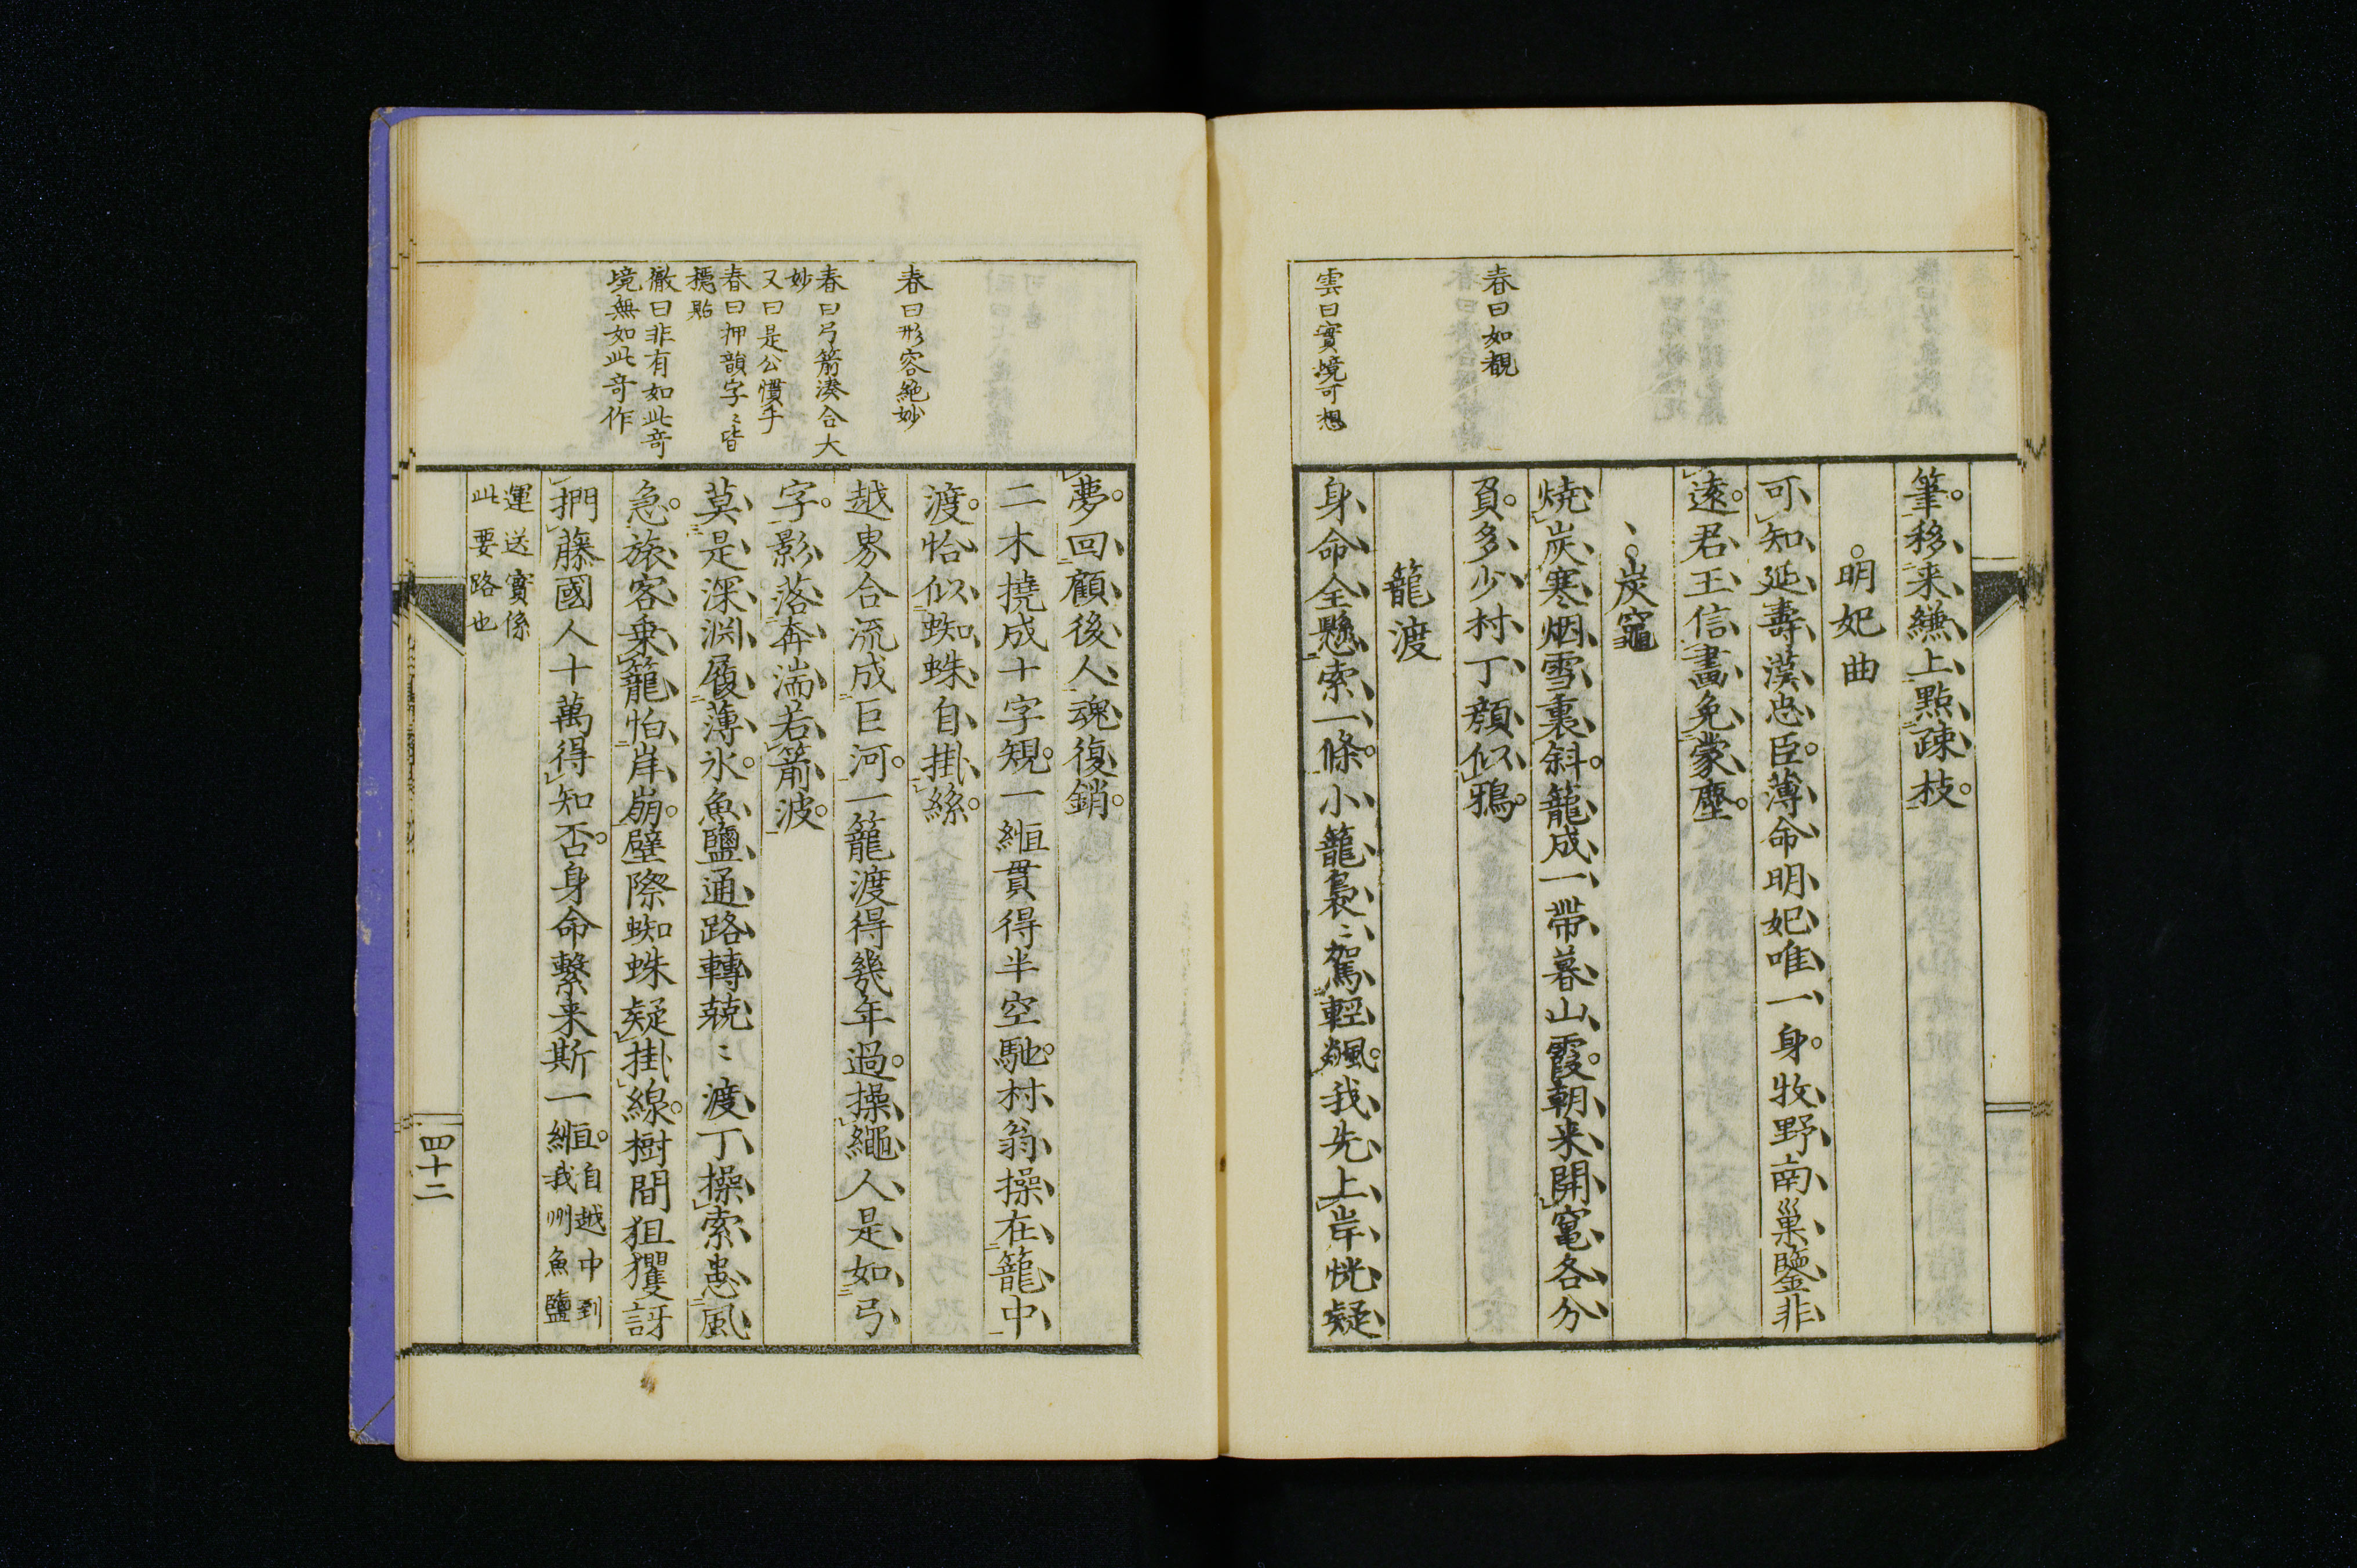 筆移来縑上點疎枝
明妃曲
可知延壽漢忠臣薄命明妃唯一身牧野南巢鑒非
遠君王信畫免蒙塵
炭竈
焼炭寒烟雪裏斜籠成一帶暮山霞朝来開窯各分
負多少村丁顏似鴉
籠渡
身命全懸索一條小籠裊〻駕輕飈我先上岸恍疑
春曰如覩
雲曰實境可想
夢回顧後人魂復銷
二木撓成十字規一緪貫得半空馳村翁操在籠中
渡恰似蜘蛛自掛絲
越界合流成巨河一籠渡得幾年過操繩人是如弓
字影落奔湍若箭波
莫是深淵履薄氷魚鹽通路轉兢〻渡丁操索患風
急旅客乗籠怕岸崩壁際蜘蛛疑掛線樹間狙玃訝
捫藤國人十萬得知否身命繫来斯一緪自越中到
我州魚鹽
運送實係
此要路也
春曰形容絶妙
春曰弓箭湊合大
妙
又曰是公慣手
春曰押韻字〻皆
穩貼
徹曰非有如此奇
境無如此奇作
四十二